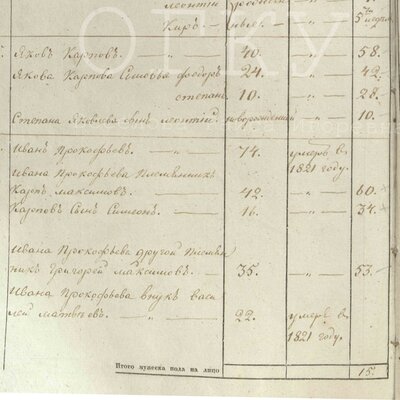 леонтій
Яковъ Карповъ. 40. " 58.
Якова Карпова Сыновья Феодоръ 24. " 42.
степанъ 10. " 28.
Степана Яковлева сынъ леонтій новорожденный " 10.
Иванъ Прокофьевъ. 74. умеръ въ
1821 году.
Ивана Прокофьева Племянникъ
Карпъ Максимовъ. 42. " 60.
Карповъ Сынъ Симеонъ. 16. " 34.
Ивана Прокофьева другой Племян
никъ Григорей Максимовъ. 35. " 53.
Ивана Прокофьева внукъ васи
лей матвѣевъ. 22. умеръ въ
1821 году.
Итого мужеска пола на лицо 15.